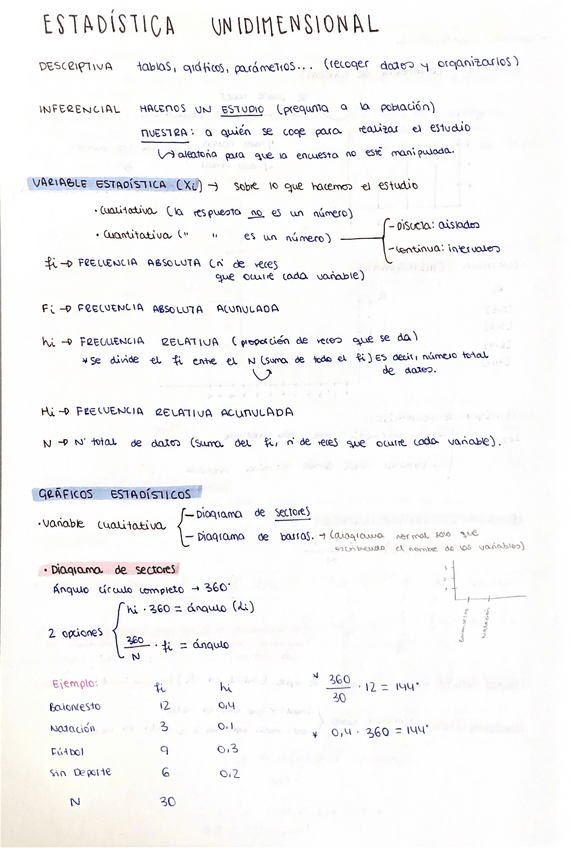 ESTADÍSTICA UNIDIMENSIONAL
DESCRIPTIVA tablas, gráficos, parámetros... (recoger datos y organizarlos)
INFERENCIAL HACEMOS UN ESTUDIO (pregunta a la población)
MUESTRA: a quién se coge para realizar el estudio
↳ aleatoria para que la encuesta no esté manipulada.
VARIABLE ESTADÍSTICA (Xi) → sobre lo que hacemos el estudio
· Cualitativa (la respuesta no es un número)
· Cuantitativa (" " es un número) — Discreta: aislados
- Continua: intervalos
fi → FRECUENCIA ABSOLUTA (nº de veces
que ocurre cada variable)
Fi → FRECUENCIA ABSOLUTA ACUMULADA
hi → FRECUENCIA RELATIVA (proporción de veces que se da)
* Se divide el fi entre el N (suma de todo el fi) ES decir, número total
de datos.
Hi → FRECUENCIA RELATIVA ACUMULADA
N → Nº total de datos (suma del fi, nº de veces que ocurre cada variable).
GRÁFICOS ESTADÍSTICOS
· Variable cualitativa - Diagrama de sectores
- Diagrama de barras. → (diagrama normal solo que
escribiendo el nombre de las variables)
· Diagrama de sectores
Ángulo círculo completo → 360°
2 opciones hi · 360 = ángulo (αi)
360/N · fi = ángulo
Baloncesto Natación
Ejemplo: fi hi
Baloncesto 12 0,4
Natación 3 0,1
Fútbol 9 0,3
Sin Deporte 6 0,2
N 30
* 360/30 · 12 = 144°
* 0,4 · 360 = 144°